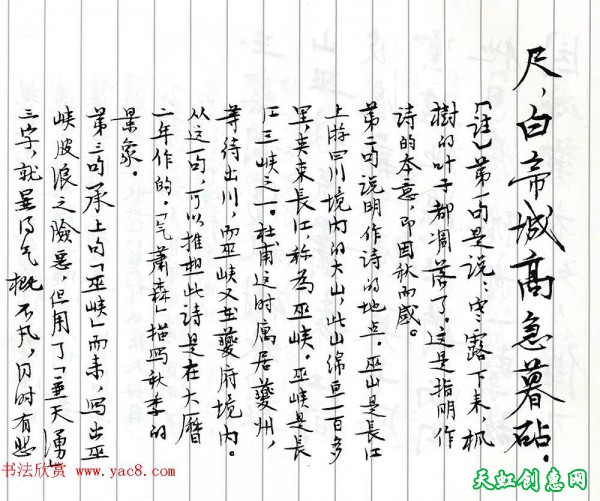 尺，白帝城高急暮砧。
「注」第一句是说：寒露下来，枫
树的叶子都凋落了。这是指明作
诗的本意，即因秋而感。
第二句说明作诗的地点。巫山是长江
上游四川境内的大山，此山绵亘一百多
里，夹束长江，称为巫峡。巫峡是长
江三峡之一。杜甫这时寓居夔州，
等待出川，而巫峡又在夔府境内。
从这一句，可以推想此诗是在大历
二年作的。「气萧森」描写秋季的
景象。
第三句承上句「巫峡」而来，写出巫
峡波浪之险恶，但用了「兼天涌」
三字，就显得气概不凡，同时有悲
书法欣赏 www.yac8.com
天虹创意网